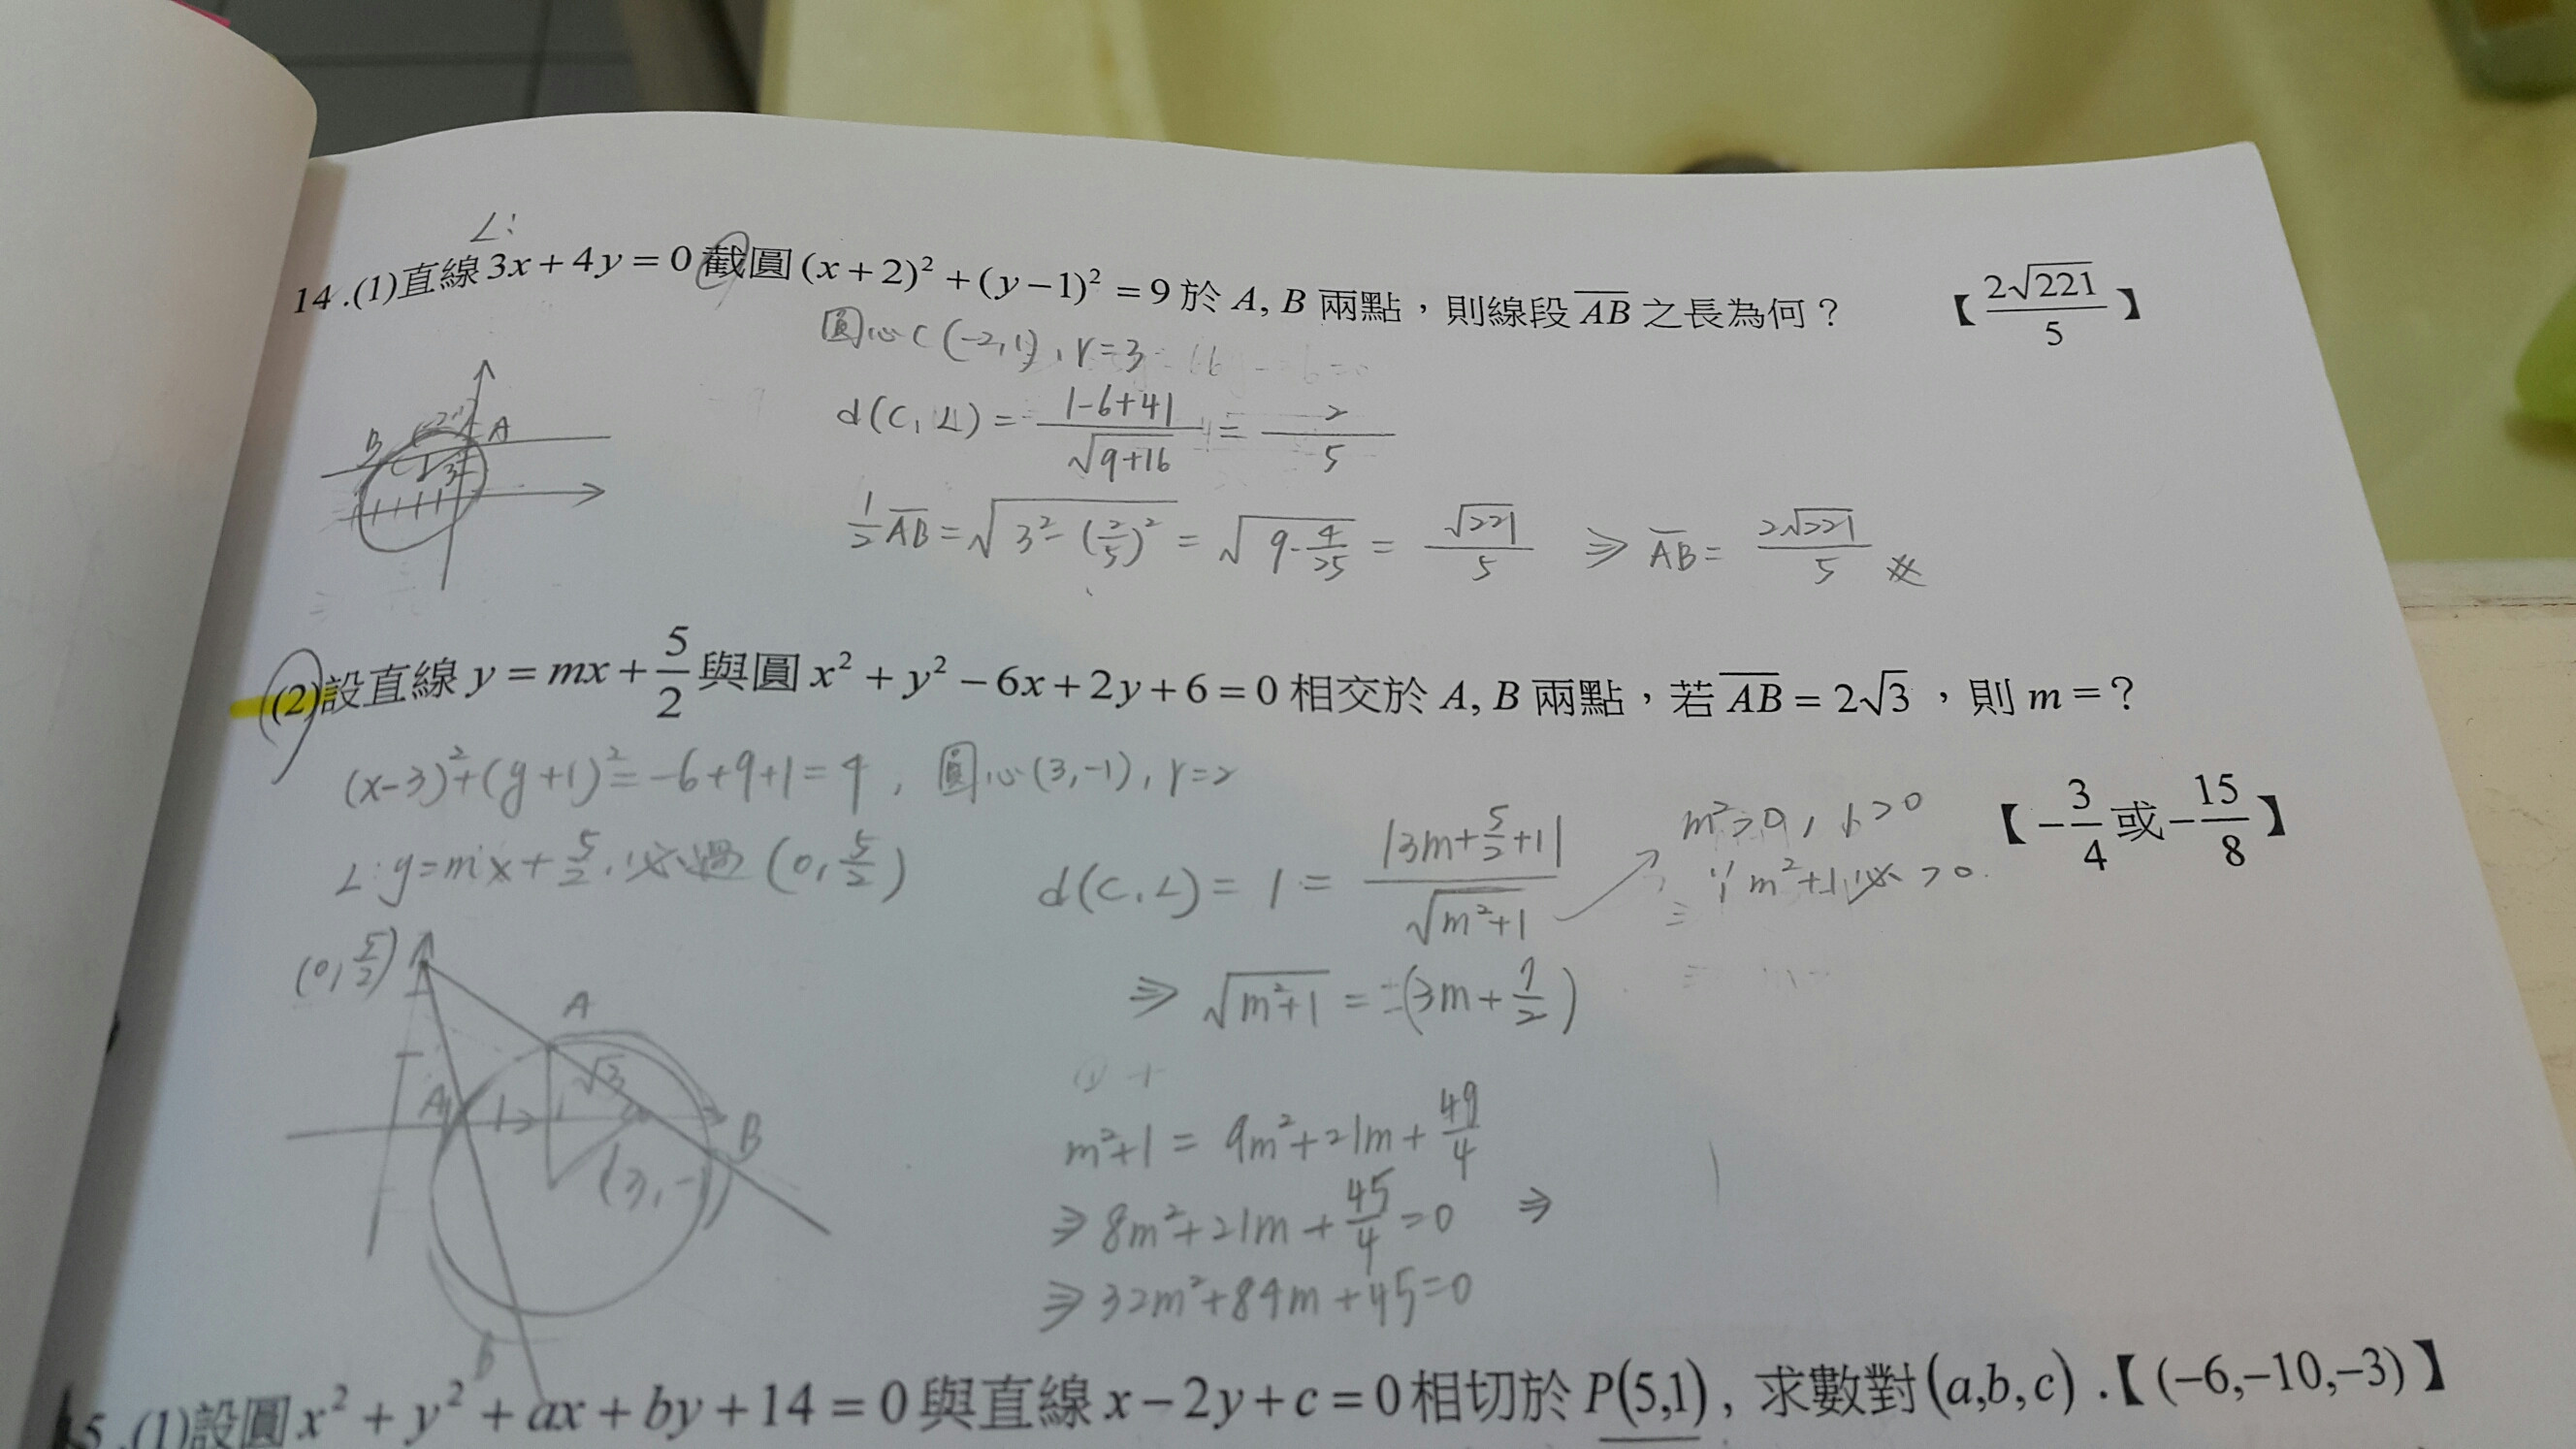 L:
14.(1)直線 3x+4y=0 截圓 (x+2)²+(y−1)²=9 於 A, B 兩點，則線段 \overline{AB} 之長為何？ 【\frac{2\sqrt{221}}{5}】
圓心C(-2,1), r=3
d(C, L) = \frac{|-6+4|}{\sqrt{9+16}} = \frac{2}{5}
B A
3
\frac{1}{2}\overline{AB} = \sqrt{3²-(\frac{2}{5})²} = \sqrt{9-\frac{4}{25}} = \frac{\sqrt{221}}{5} ⇒ \overline{AB} = \frac{2\sqrt{221}}{5}
(2)設直線 y=mx+\frac{5}{2} 與圓 x²+y²−6x+2y+6=0 相交於 A, B 兩點，若 \overline{AB}=2\sqrt{3}，則 m=？
【−\frac{3}{4}或−\frac{15}{8}】
(x-3)²+(y+1)²=-6+9+1=4, 圓心(3,-1), r=2
L:y=mx+\frac{5}{2}, 必過 (0,\frac{5}{2})
d(C, L) = 1 = \frac{|3m+\frac{5}{2}+1|}{\sqrt{m²+1}}
m²>0, 1>0
∴ m²+1 必>0
⇒ \sqrt{m²+1} = ±(3m+\frac{7}{2})
m²+1 = 9m²+21m+\frac{49}{4}
⇒ 8m²+21m+\frac{45}{4}=0 ⇒
⇒ 32m²+84m+45=0
(0,\frac{5}{2})
A
\sqrt{3}
A 1 2
B
(3,-1)
B
15.(1)設圓 x²+y²+ax+by+14=0 與直線 x−2y+c=0 相切於 P(5,1), 求數對(a,b,c).【(−6,−10,−3)】